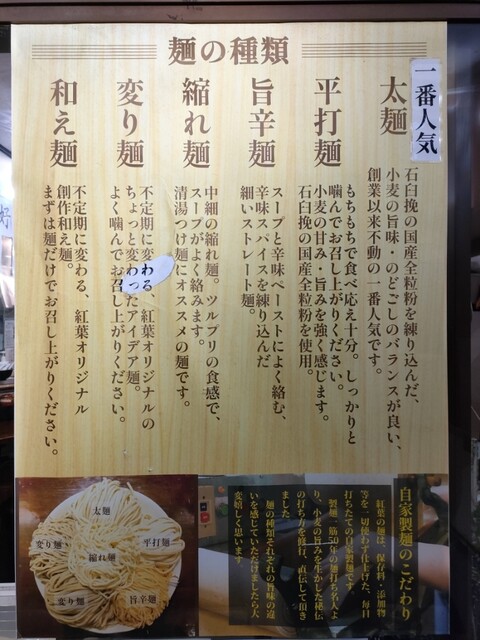 麺の種類
一番人気
太麺
石臼挽の国産全粒粉を練り込んだ、
小麦の旨味・のどごしのバランスが良い、
創業以来不動の一番人気です。
平打麺
もちもちで食べ応え十分。しっかりと
噛んでお召し上がりください。
小麦の甘み・旨みを強く感じます。
石臼挽の国産全粒粉を使用。
旨辛麺
スープと辛味ペーストによく絡む、
辛味スパイスを練り込んだ
細いストレート麺。
縮れ麺
中細の縮れ麺。ツルプリの食感で、
スープがよく絡みます。
清湯つけ麺にオススメの麺です。
変り麺
不定期に変わる、紅葉オリジナルの
ちょっと変わったアイデア麺。
よく噛んでお召し上がりください。
和え麺
不定期に変わる、紅葉オリジナル
創作和え麺。
まずは麺だけでお召し上がりください。
自家製麺のこだわり
紅葉の麺は、保存料・添加物
等を一切使わず仕上げた、毎日
打ちたての自家製麺です。
製麺一筋50年の麺打ち名人よ
り、小麦の旨みを生かした秘伝
の打ち方を修行、直伝して頂き
ました
麺の種類それぞれの旨味の違
いを感じていただけましたら大
変嬉しく思います
太麺
変り麺
平打麺
縮れ麺
変り麺
旨辛麺